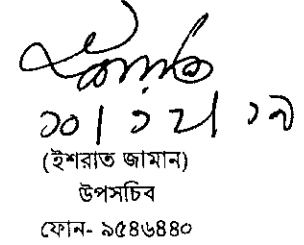 ১০|১২|১৯
(ইশরাত জামান)
উপসচিব
ফোন- ৯৫৪৬৪৪০